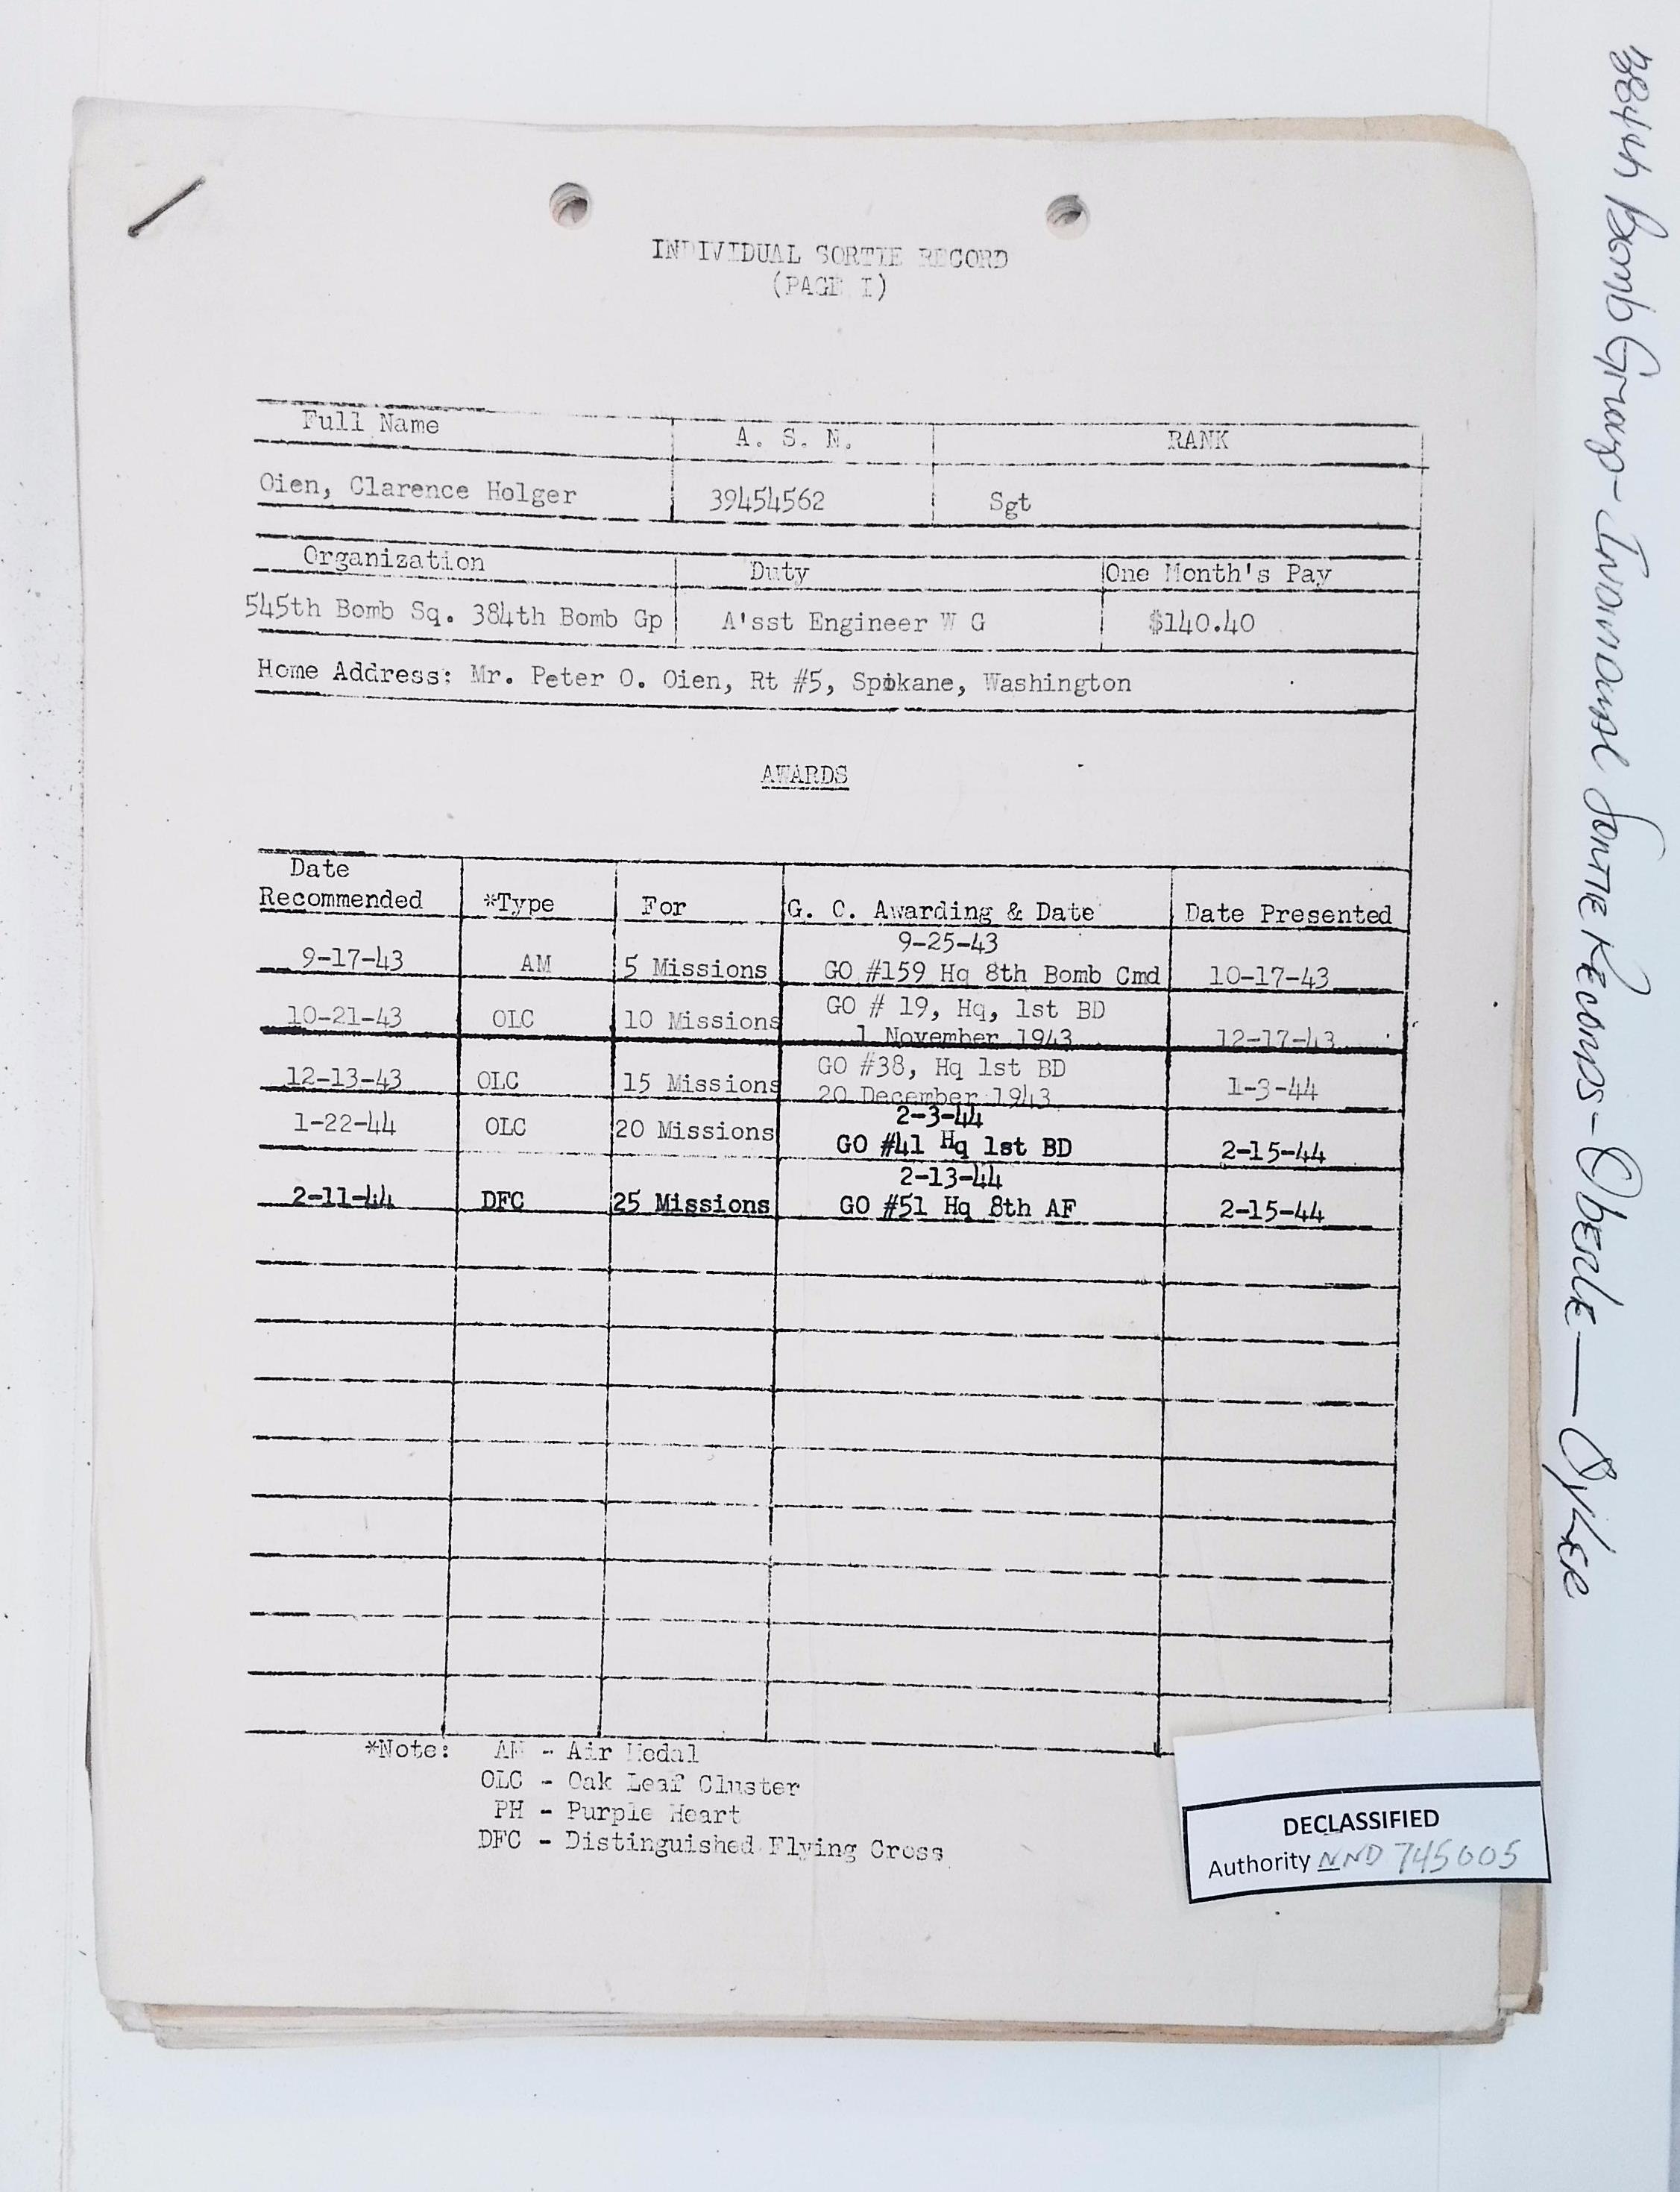 INDIVIDUAL SORTIE RECORD
(PAGE I)
Full Name A. S. N. RANK
Oien, Clarence Holger 39454562 Sgt
Organization Duty One Month's Pay
545th Bomb Sq. 384th Bomb Gp A'sst Engineer W G $140.40
Home Address: Mr. Peter O. Oien, Rt #5, Spokane, Washington
AWARDS
Date
Recommended *Type For G. C. Awarding & Date Date Presented
9-25-43
9-17-43 AM 5 Missions GO #159 Hq 8th Bomb Cmd 10-17-43
10-21-43 OLC 10 Missions GO # 19, Hq, 1st BD
1 November 1943 12-17-43
12-13-43 OLC 15 Missions GO #38, Hq 1st BD 1-3-44
20 December 1943
1-22-44 OLC 20 Missions 2-3-44
GO #41 Hq 1st BD 2-15-44
2-13-44
2-11-44 DFC 25 Missions GO #51 Hq 8th AF 2-15-44
*Note: AM - Air Medal
OLC - Oak Leaf Cluster
PH - Purple Heart
DFC - Distinguished Flying Cross
DECLASSIFIED
Authority NND 745005
384th Bomb Group - Individual Sortie Records - Oberle — Oyler